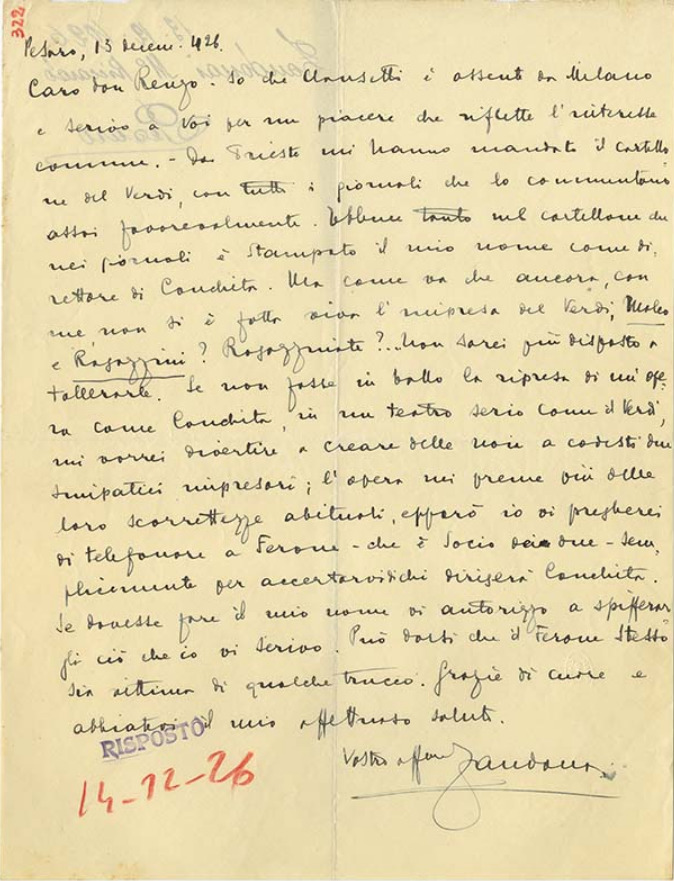 322
Pesaro, 13 decem. 926.
Caro don Renzo. So che Clausetti è assente da Milano
e scrivo a voi per un piacere che riflette l'interesse
comune. - Da Trieste mi hanno mandato il cartello
ne del Verdi, con tutti i giornali che lo commentano
assai favorevolmente. Ebbene tanto nel cartellone che
nei giornali è stampato il mio nome come di,
rettore di Conchita. Ma come va che ancora, con
me non si è fatta viva l'impresa del Verdi,
e Ragazzini? Ragazzinate?... non sarei più disposto a
tollerarle. Se non fosse in ballo la ripresa di un'ope,
ra come Conchita, in un teatro serio come il Verdi,
mi vorrei divertire a creare delle noie a codesti due
simpatici impresari; l'opera mi preme più delle
loro scorrettezze abituali, epparò io vi pregherei
di telefonare a Ferone - che è socio dei due - sem,
plicemente per accertarvi di chi dirigerà Conchita.
Se dovesse fare il mio nome vi autorizzo a spifferar
gli ciò che io vi scrivo. Può darsi che il Ferone stesso
sia vittima di qualche trucco. Grazie di cuore e
abbiatevi il mio affettuoso saluto.
RISPOSTO
Vostro affmo Zandonai
14-12-26